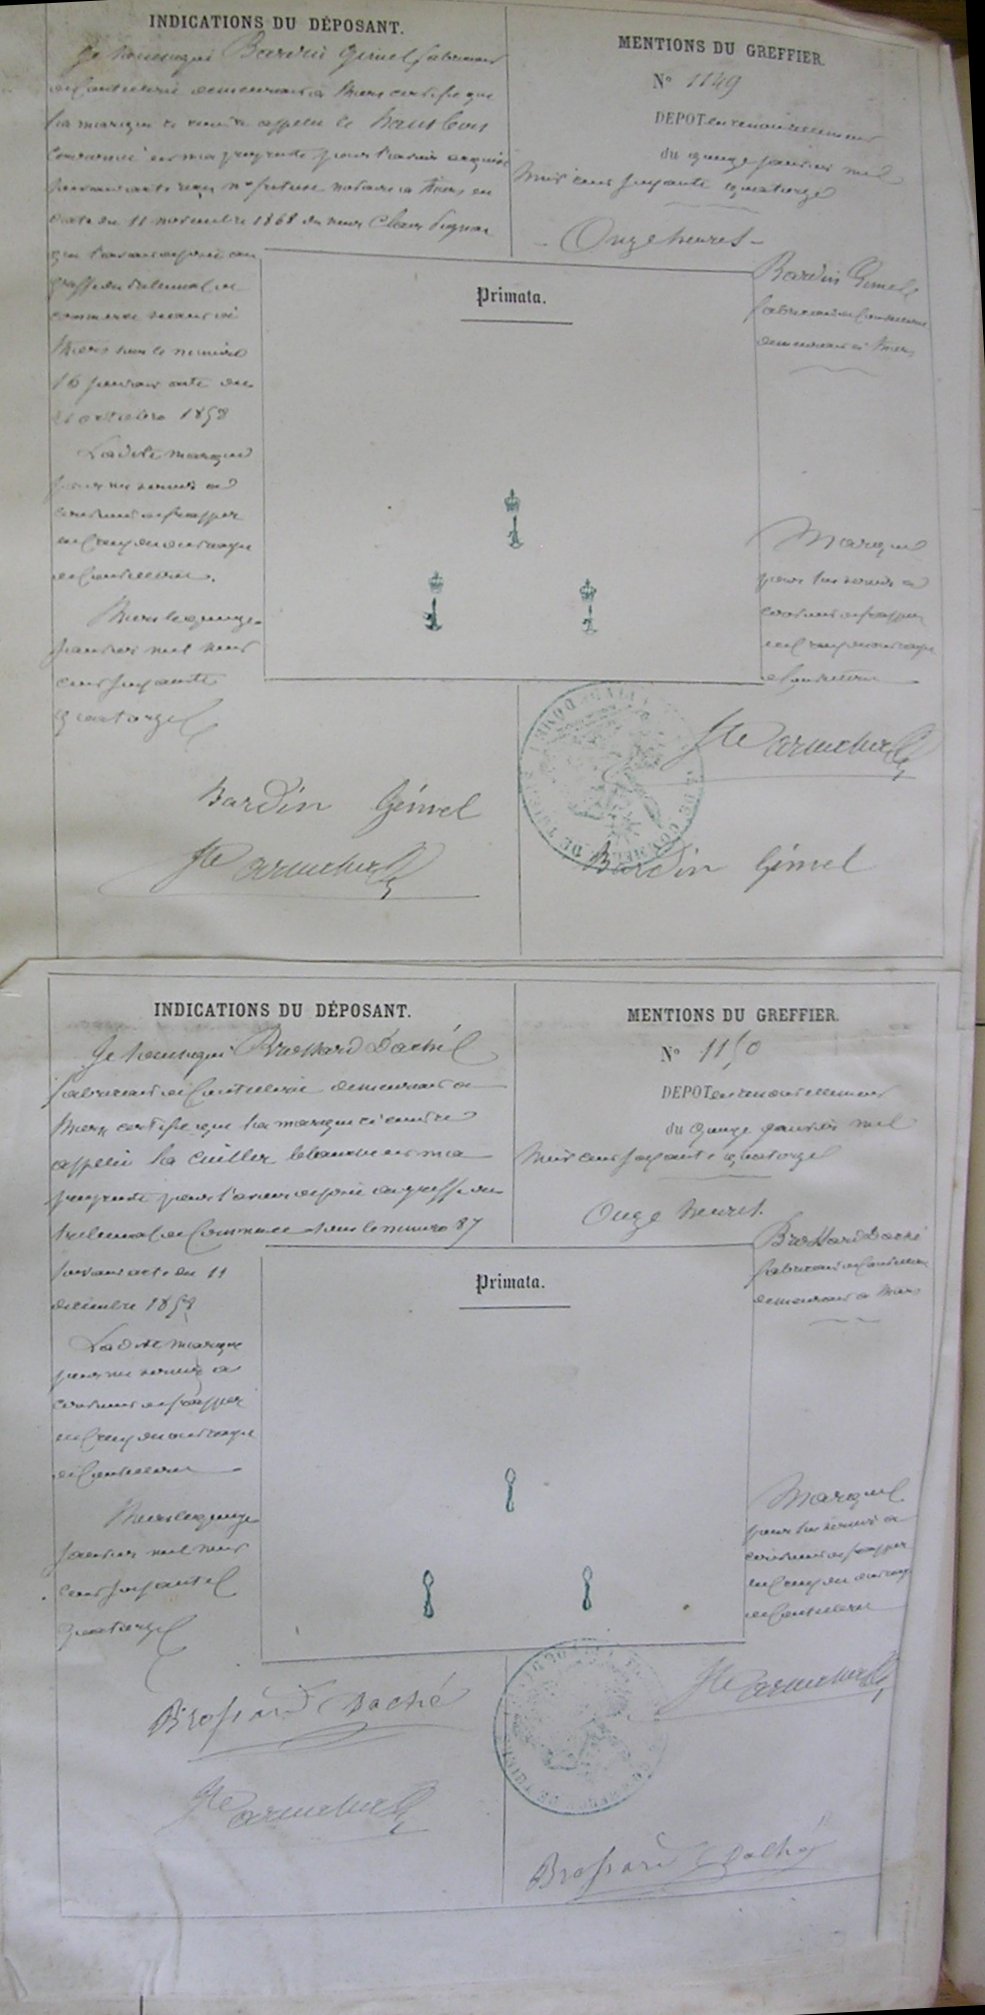 INDICATIONS DU DÉPOSANT.
Je soussigné Bardin Gimel fabricant
de Coutellerie demeurant à Thiers certifie que
la marque ci contre appelée le hautbois
couronné est ma propriété pour l'avoir acquise
suivant acte reçu notaire à Thiers en
date du 11 novembre 1868 du sieur
qui l'avait déposée au
greffe du tribunal de
commerce séant à
Thiers sous le numéro
16 suivant acte du
octobre 1858
Ladite marque
pour me servir à
continuer de frapper
de Coutellerie.
Thiers le quinze
janvier mil huit
cent soixante
quatorze
Bardin Gimel
MENTIONS DU GREFFIER.
N° 1149
DEPOT en renouvellement
du quinze janvier mil
huit cent soixante quatorze
Onze heures
Bardin Gimel
fabricant de Coutellerie
demeurant à Thiers
Primata.
Marque
pour lui servir à
continuer de frapper
de Coutellerie
Bardin Gimel
INDICATIONS DU DÉPOSANT.
Je soussigné Brossard Daché
fabricant de Coutellerie demeurant à
Thiers certifie que la marque ci contre
appelée la Cuiller blanche est ma
propriété pour l'avoir déposée au greffe du
tribunal de Commerce sous le numéro 87
suivant acte du 11
décembre 1858
Ladite marque
pour me servir à
continuer de frapper
de Coutellerie
Thiers le quinze
janvier mil huit
cent soixante
quatorze
Brossard Daché
MENTIONS DU GREFFIER.
N° 1150
DEPOT en renouvellement
du quinze janvier mil
huit cent soixante quatorze
Onze heures.
Brossard Daché
fabricant de Coutellerie
demeurant à Thiers
Primata.
Marque
pour lui servir à
continuer de frapper
de Coutellerie
Brossard Daché